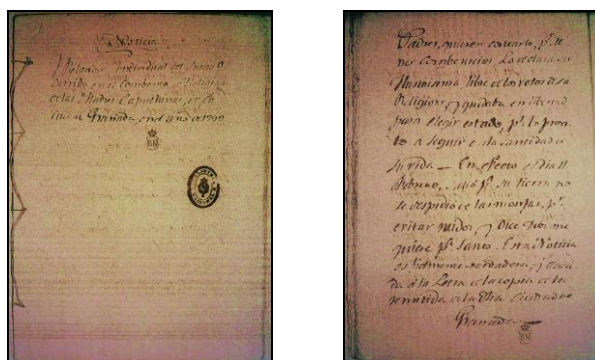 Noticia
Relacion Individual del suceso O
currido en el Combento de Religiosas
de las Madres Capuchinas, de la
Ciudad Granada, en el año de 1792
BN
Padres, quieren
ner Combencidos, Lo declaran
Nulissima, libre de los votos de su
Religion, y quedaba en livertad
para elegir estado, pr. lo pron
to a seguir en la santidad de
su vida — En efecto el dia 11
Febrero, salió pa. su tierra no
se despidio de las monjas, pr.
evitar ruidos, y Dice Dios me
quiere pa. Santo. Esta Noticia
es fielmente verdadera, y saca
da a la Letra de la copia de la
remitida de la Dha. Ciudad de
Granada —
BN